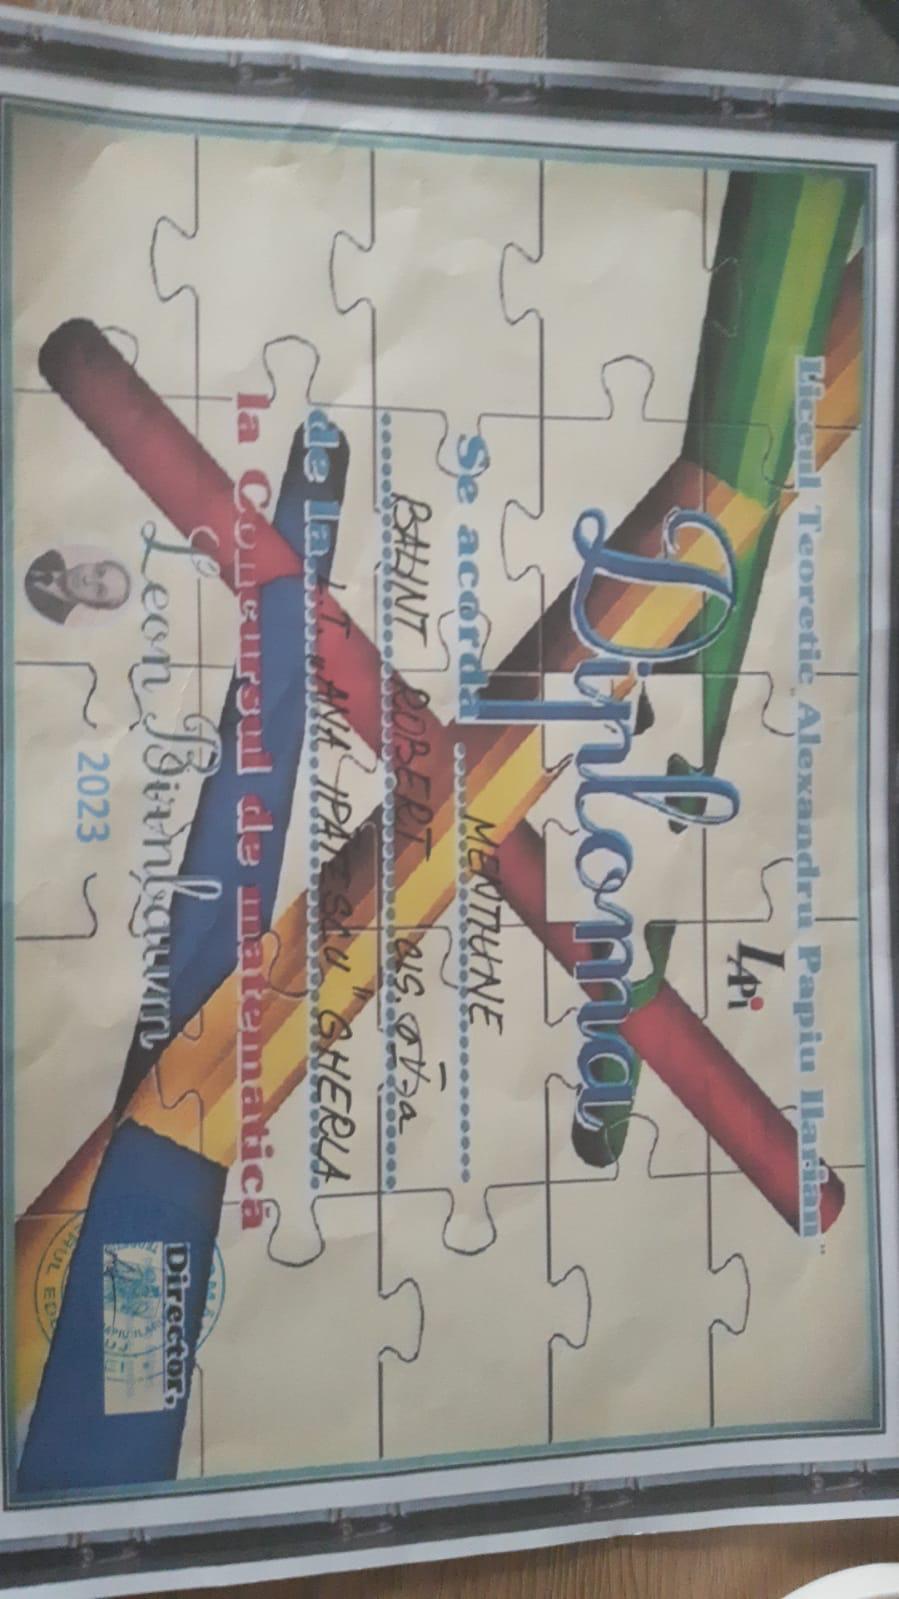 Liceul Teoretic „Alexandru Papiu Ilarian”
LAPi
Diploma
Se acordă MENȚIUNE
BALINT ROBERT cls. a V-a
de la LT „ANA IPĂTESCU” GHERLA
la Concursul de matematică
Leon Birnbaum
2023
Director,